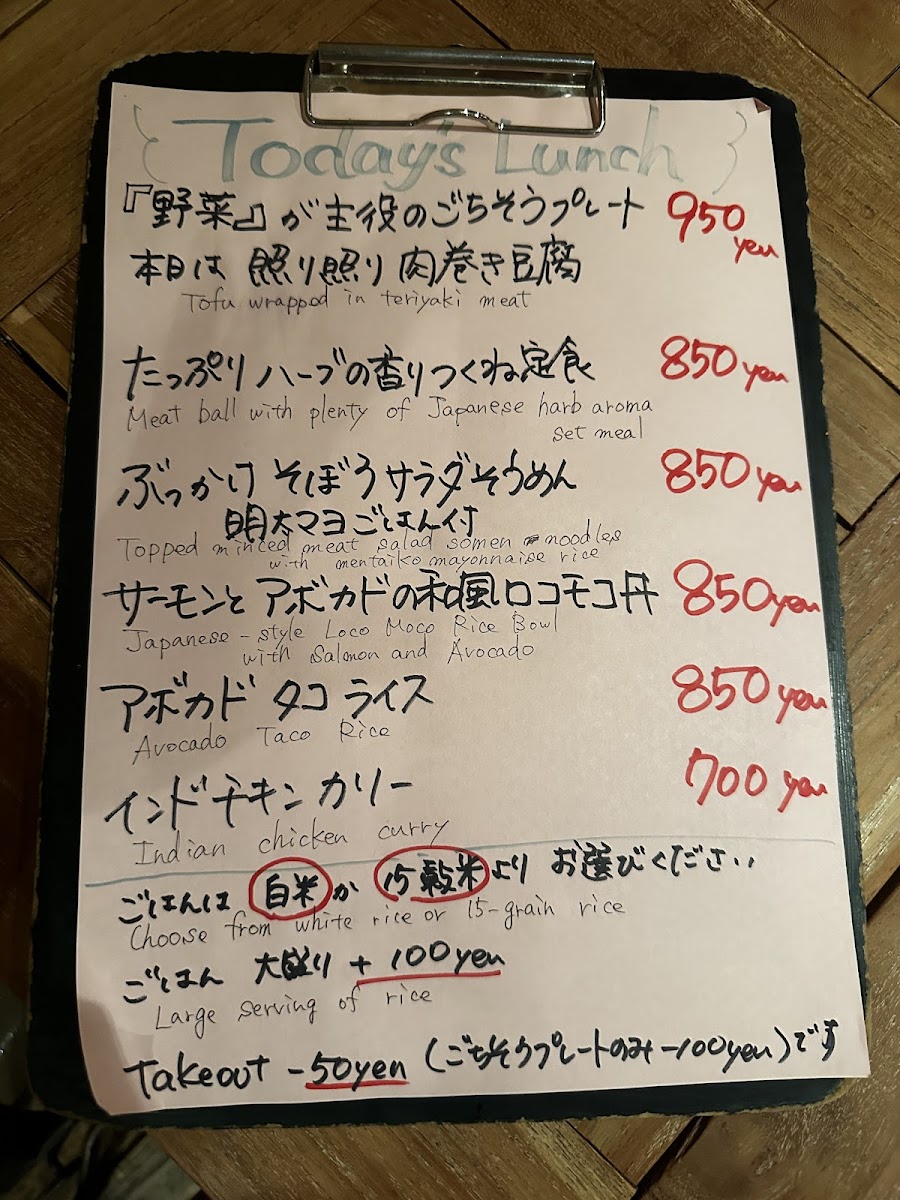 Today's Lunch
『野菜』が主役のごちそうプレート 950 yen
本日は 照り照り 肉巻き豆腐
Tofu wrapped in teriyaki meat
たっぷり ハーブの香りつくね定食 850 yen
Meat ball with plenty of Japanese harb aroma
set meal
ぶっかけ そぼろサラダそうめん 850 yen
明太マヨごはん付
Topped minced meat salad somen noodles
with mentaiko mayonnaise rice
サーモンと アボカドの和風ロコモコ丼 850 yen
Japanese-style Loco Moco Rice Bowl
with Salmon and Avocado
アボカド タコ ライス 850 yen
Avocado Taco Rice
インドチキン カリー 700 yen
Indian chicken curry
ごはんは 白米 か 15穀米 より お選びください
Choose from white rice or 15-grain rice
ごはん 大盛り + 100 yen
Large serving of rice
Takeout -50yen (ごちそうプレートのみ-100yen)です